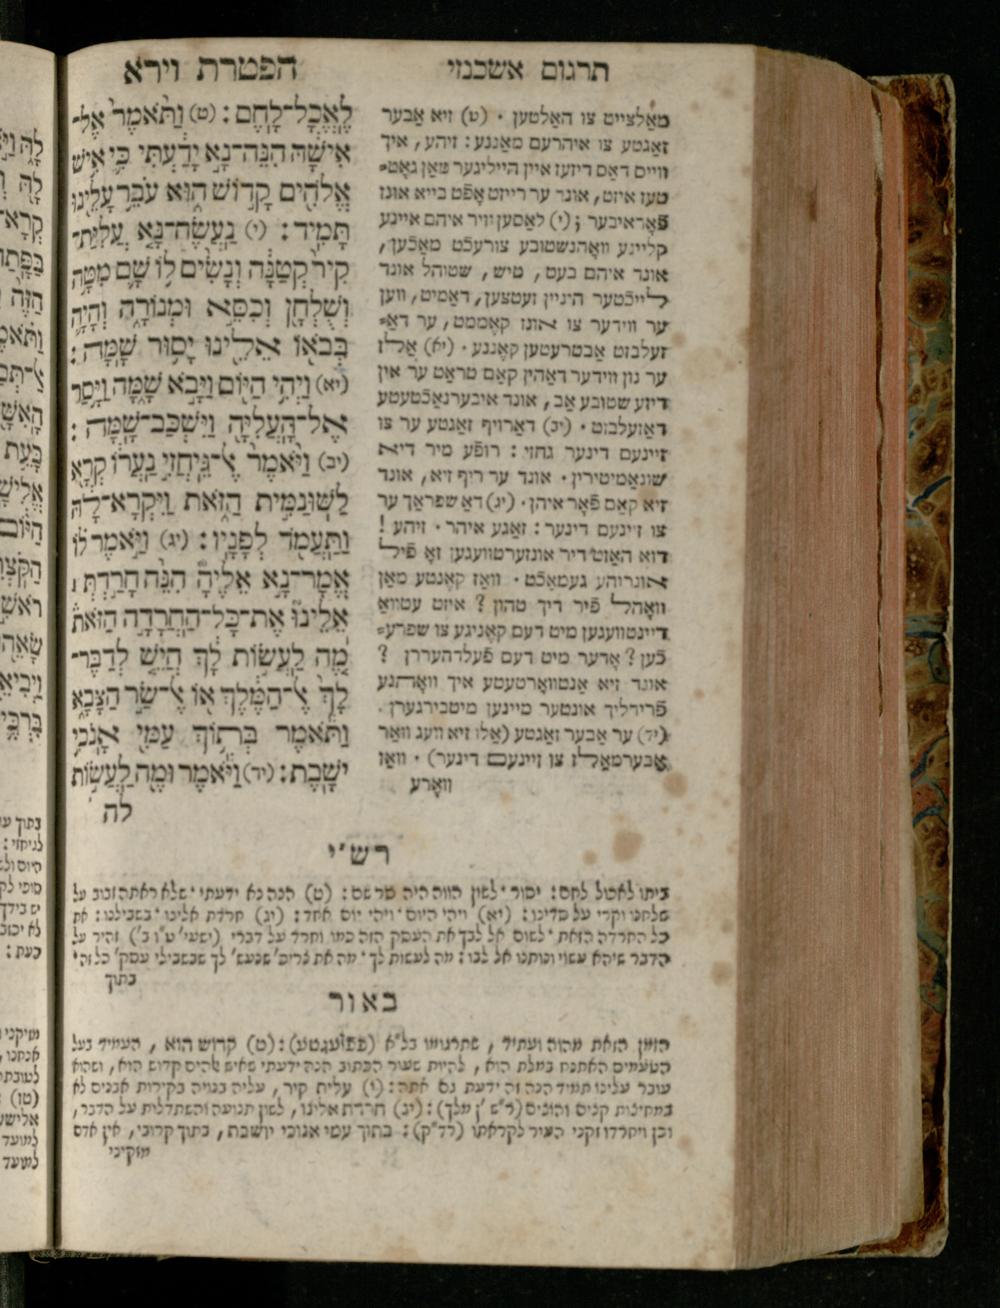 תרגום אשכנזי
מאָלצייט צו האַלטען · (ט) זיא אַבער
זאַגטע צו איהרעם מאַננע : זיהע, איך
ווייס דאַס דיזעז איין הייליגער מאַן גאָט־
טעז איזט, אונד ער רייזט אָפֿט בייא אונז
פֿאָראיבער ; (י) לאַסען וויר איהם איינע
קליינע וואָהנשטובע צורעכֿט מאַכֿען,
אונד איהם בעט, טיש, שטוהל אונד
לייכֿטער היניין זעטצען, דאַמיט, ווען
ער ווידער צו אונז קאָממט, ער דאַ־
זעלבזט אַבטרעטען קאָננע · (יא) אַלז
ער נון ווידער דאַהין קאַם טראַט ער אין
דיזע שטובע אַב, אונד איבערנאַכֿטעטע
דאַזעלבזט · (יב) דאַרויף זאַגטע ער צו
זיינעם דינער גחזי : רופֿע מיר דיא
שונאַמיטירין · אונד ער ריף זיא, אונד
זיא קאַם פֿאָר איהן · (יג) דאַ שפראַך ער
צו זיינעם דינער : זאַגע איהר · זיהע !
דוא האַזט דיר אונזערטוועגען זאָ פֿיל
אונרוהע געמאַכֿט · וואַז קאָנטע מאַן
וואָהל פֿיר דיך טהון ? איזט עטוואַ
דיינטוועגען מיט דעם קאָניגע צו שפרע־
כֿען ? אָדער מיט דעם פֿעלדהעררן ?
אונד זיא אַנטוואָרטעטע איך וואָהנע
פֿרידליך אונטער מיינען מיטבירגערן .
(יד) ער אַבער זאַגטע (אַלז זיא וועג וואַר
אַבערמאַלז צו זיינעם דינער) · וואַז
וואָרע
הפטרת וירא
לֶאֱכָל־לָחֶם : (ט) וַתֹּאמֶר אֶל־
אִישָׁהּ הִנֵּה־נָא יָדַעְתִּי כִּי אִישׁ
אֱלֹהִים קָדוֹשׁ הוּא עֹבֵר עָלֵינוּ
תָּמִיד : (י) נַעֲשֶׂה־נָּא עֲלִיַּת־
קִיר קְטַנָּה וְנָשִׂים לוֹ שָׁם מִטָּה
וְשֻׁלְחָן וְכִסֵּא וּמְנוֹרָה וְהָיָה
בְּבֹאוֹ אֵלֵינוּ יָסוּר שָׁמָּה :
(יא) וַיְהִי הַיּוֹם וַיָּבֹא שָׁמָּה וַיָּסַר
אֶל־הָעֲלִיָּה וַיִּשְׁכַּב־שָׁמָּה :
(יב) וַיֹּאמֶר אֶל־גֵּיחֲזִי נַעֲרוֹ קְרָא
לַשּׁוּנַמִּית הַזֹּאת וַיִּקְרָא־לָהּ
וַתַּעֲמֹד לְפָנָיו : (יג) וַיֹּאמֶר לוֹ
אֱמָר־נָא אֵלֶיהָ הִנֵּה חָרַדְתְּ ׀
אֵלֵינוּ אֶת־כָּל־הַחֲרָדָה הַזֹּאת
מֶה לַעֲשׂוֹת לָךְ הֲיֵשׁ לְדַבֶּר־
לָךְ אֶל־הַמֶּלֶךְ אוֹ אֶל־שַׂר הַצָּבָא
וַתֹּאמֶר בְּתוֹךְ עַמִּי אָנֹכִי
יֹשָׁבֶת : (יד) וַיֹּאמֶר וּמֶה לַעֲשׂוֹת
לה
רש״י
ביתו לאכול לחם : יסור · לשון הווה היה סר שם : (ט) הנה נא ידעתי · שלא ראתה זבוב על
שלחנו וקרי על סדינו : (יא) ויהי היום · ויהי יום אחד : (יג) חרדת אלינו · בשבילנו : את
כל החרדה הזאת · לשום אל לבך את העסק הזה כמו וחרד על דברי (ישעי׳ ס״ו ב׳) זהיר על
הדבר שיהא עשוי ונותנו אל לבו : מה לעשות לך · מה את צריכ׳ שנעש׳ לך שבשבילי עסק׳ כל זה ·
בתוך
באור
הזמן הזאת מהוה ועתיד , שתרגומו בל״א (פפלעגטע) : (ט) קדוש הוא , העמיד בעל
הטעמים האתנח במלת הוא , להיות שעור הכתוב הנה ידעתי שאיש אלהים קדוש הוא , ושהוא
עובר עלינו תמיד הנה זה ידעת גם אתה : (י) עלית קיר , עליה בנויה בקירות אבנים לא
במחיצות קנים והוצים (ר״ש ן׳ מלך) : (יג) חרדת אלינו , לשון תנועה והשתדלות על הדבר ,
וכן ויחרדו זקני העיר לקראתו (רד״ק) : בתוך עמי אנוכי יושבת , בתוך קרובי , אין אדם
מזקיני